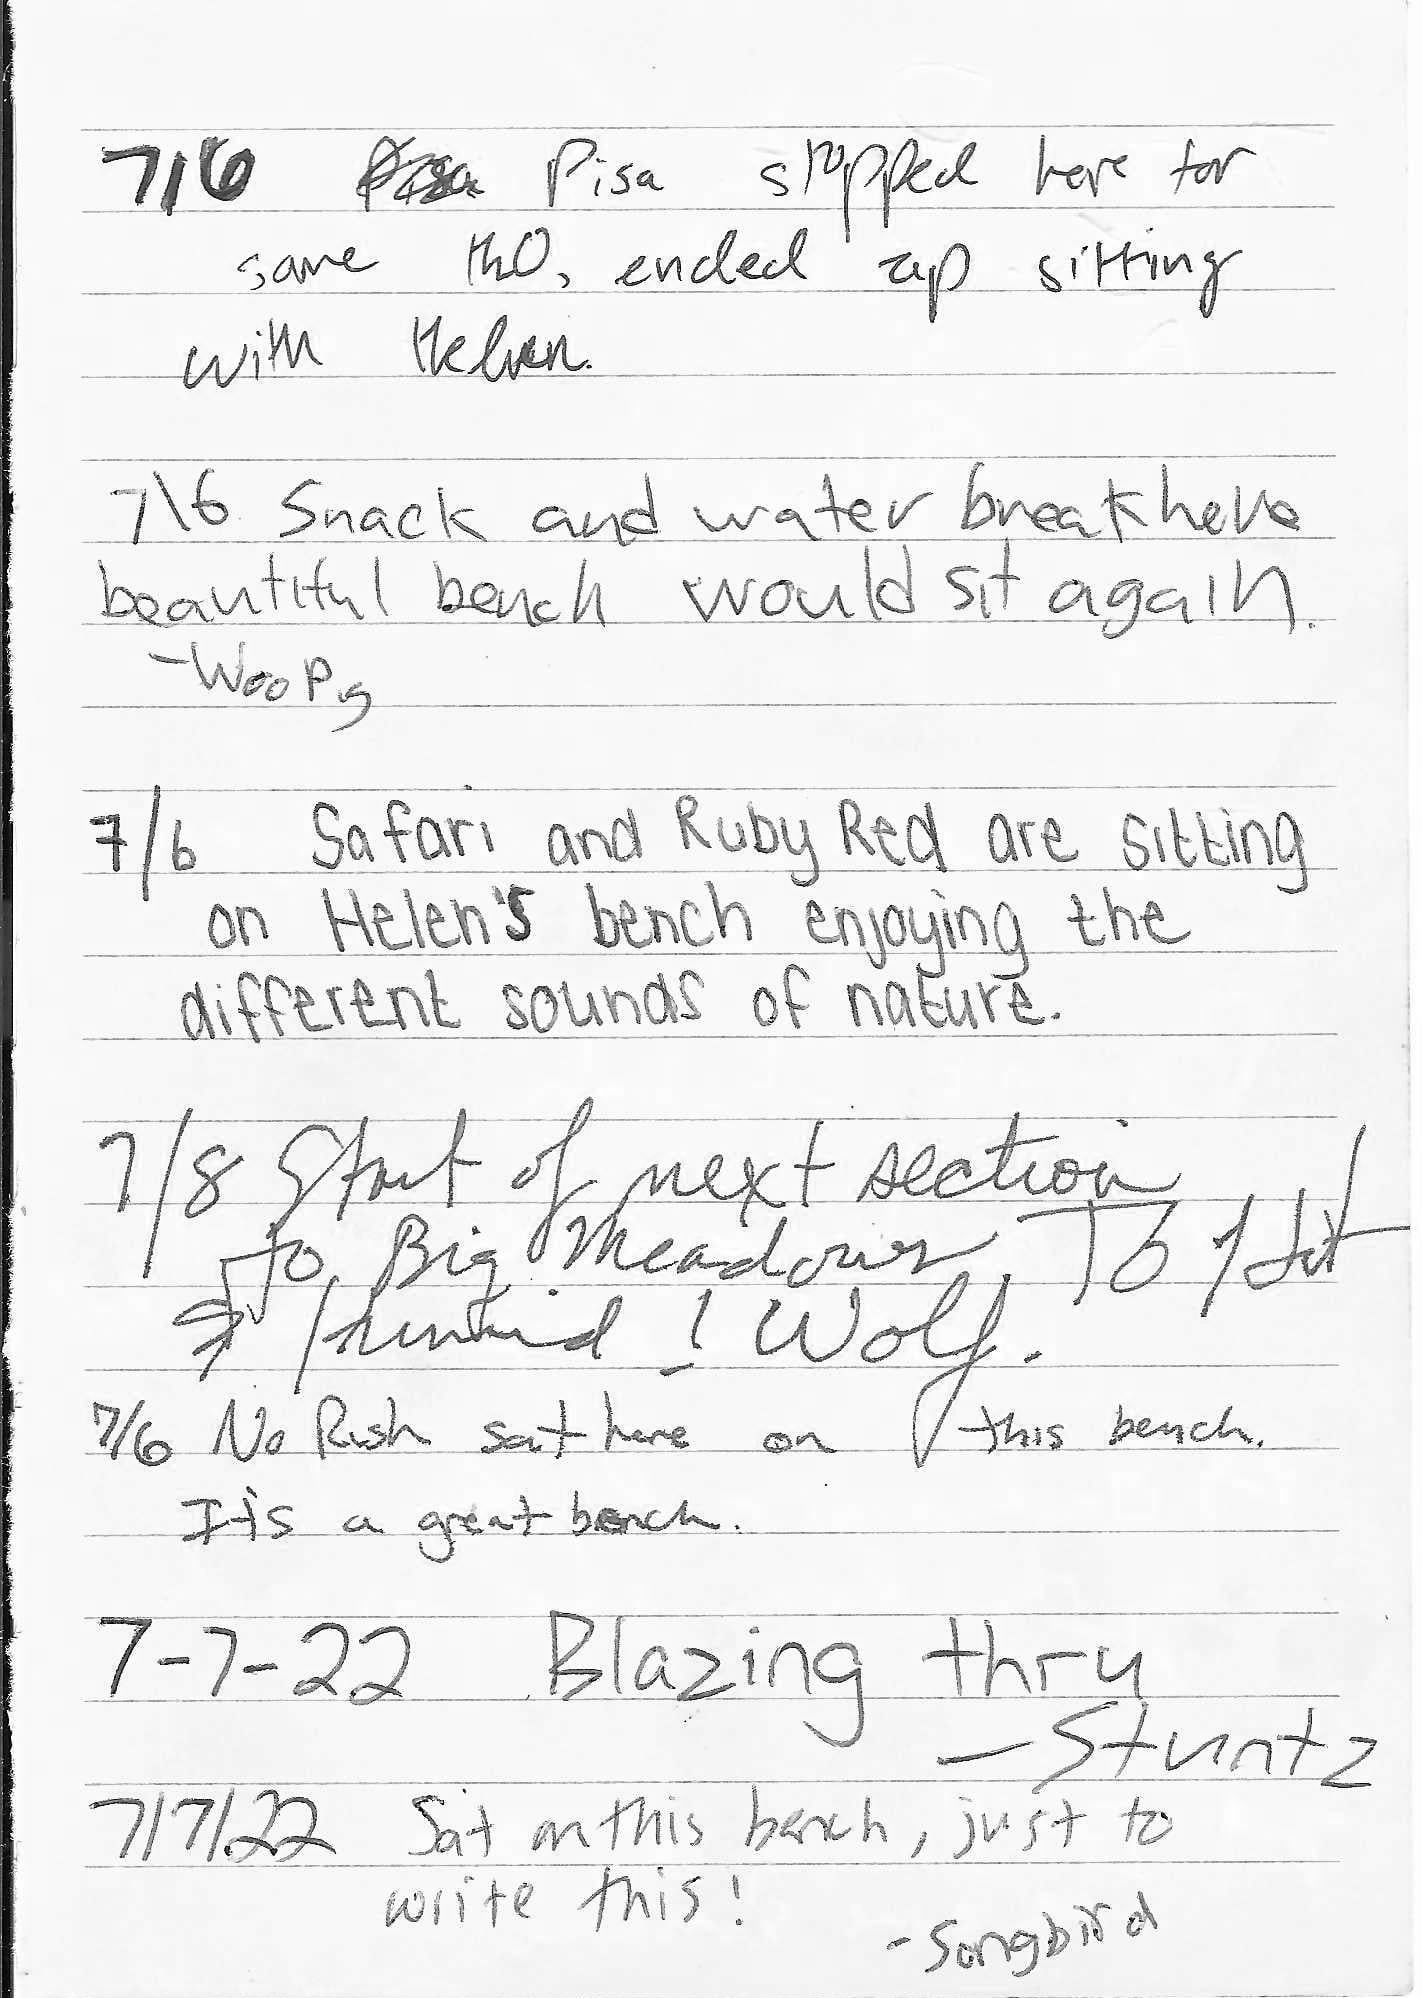 7/6 Pisa Pisa stopped here for
some H2O, ended up sitting
with Helen.
7\6 Snack and water break here
beautiful bench would sit again.
- Woo Pig
7/6 Safari and Ruby Red are sitting
on Helen's bench enjoying the
different sounds of nature.
7/8 Start of next section
to Big Meadows.
Humid! Wolf.
7/6 No Rush sat here on this bench.
It's a great bench.
7-7-22 Blazing thru
- Stuntz
7/7/22 Sat on this bench, just to
write this!
- Songbird